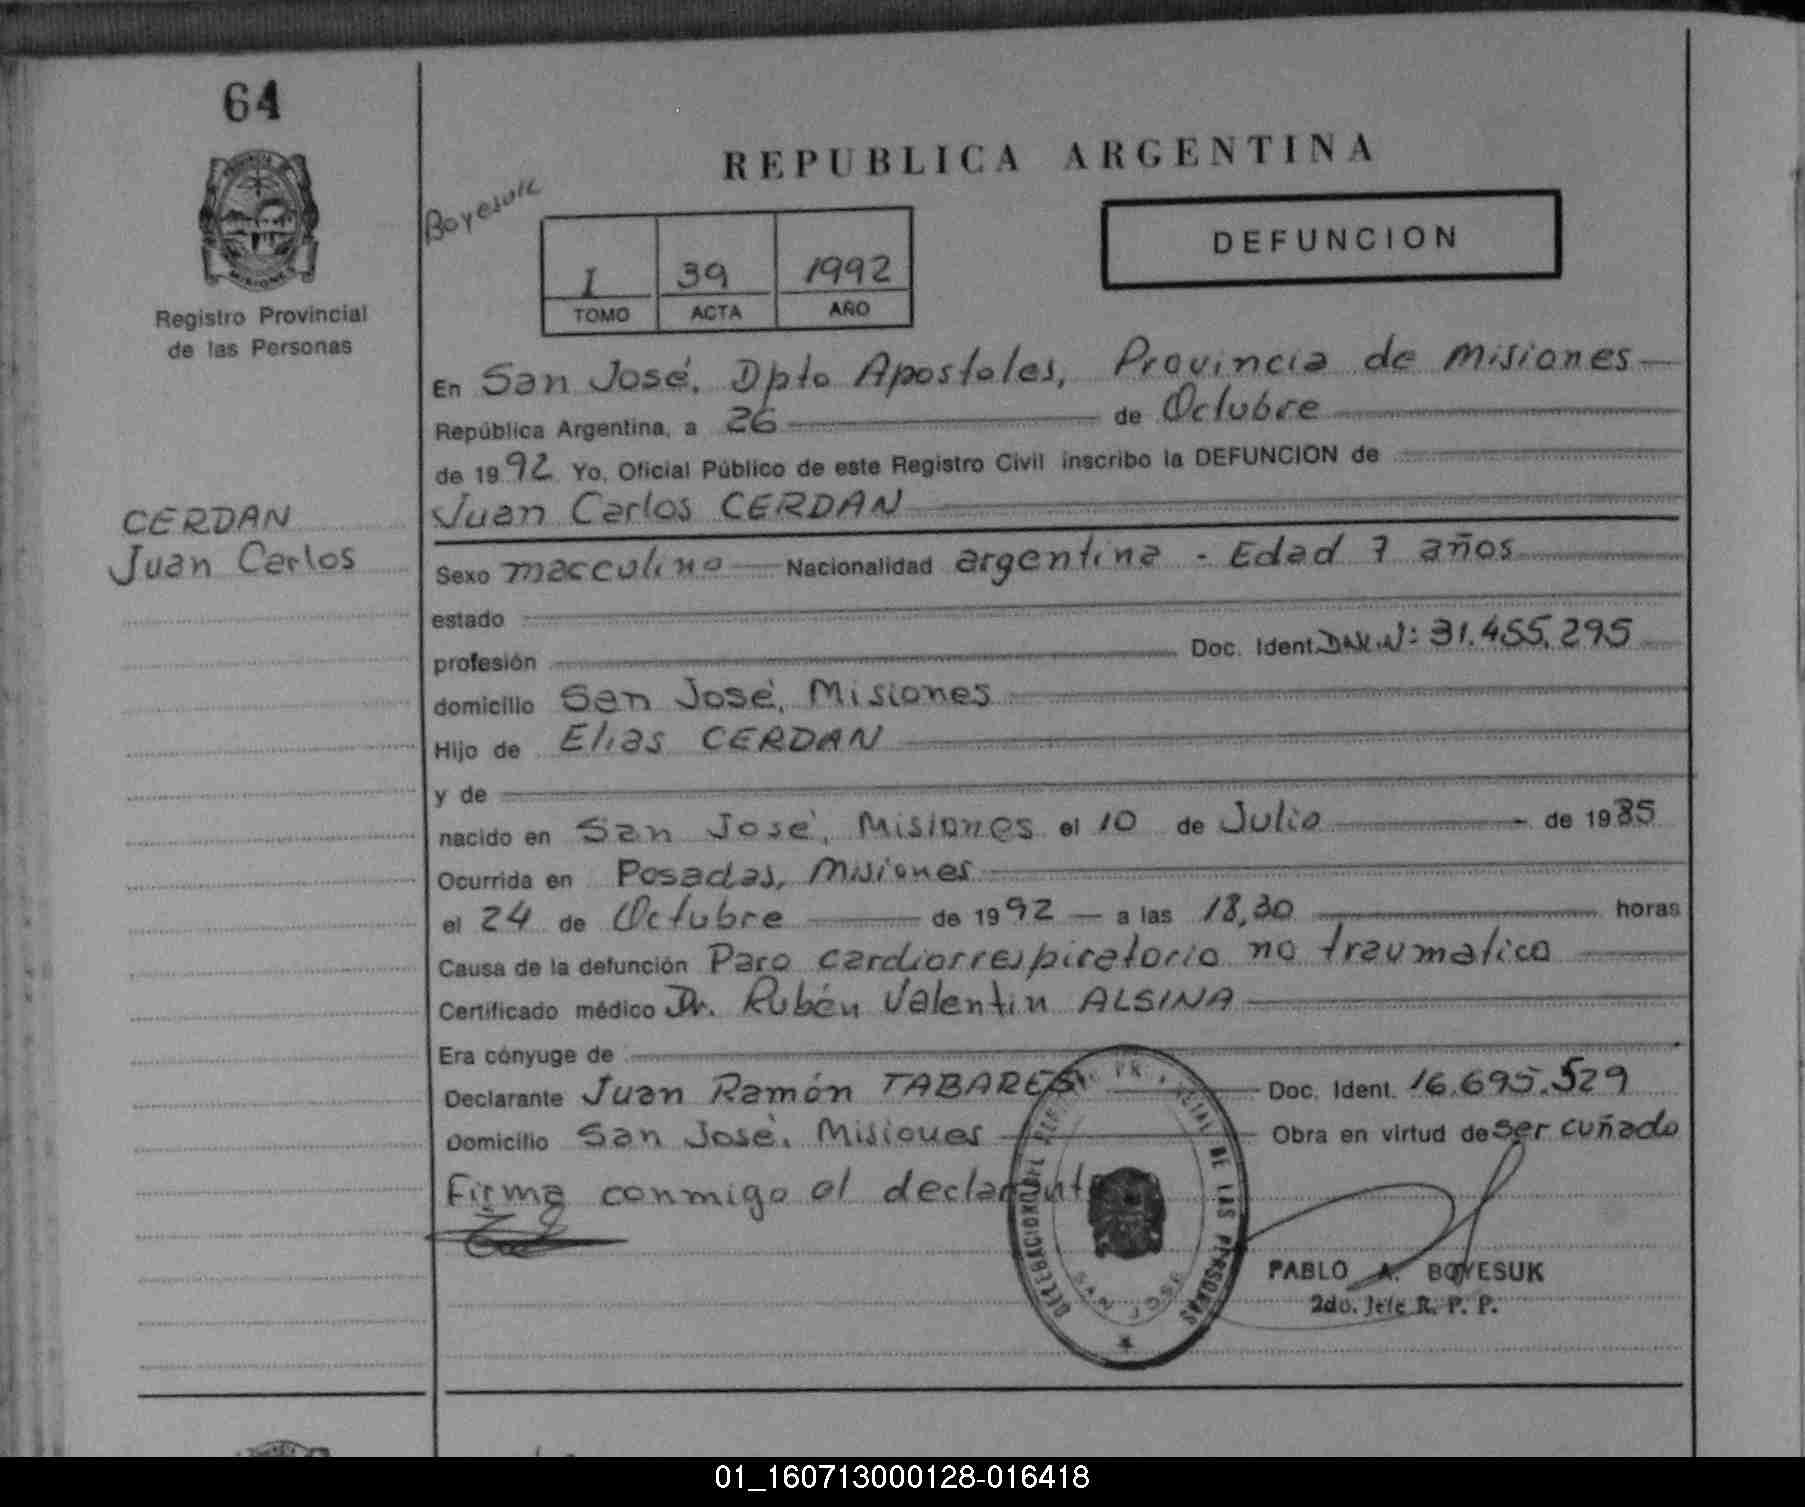 64
REPUBLICA ARGENTINA
Boyesuk
DEFUNCION
I 39 1992
TOMO ACTA AÑO
MISIONES
Registro Provincial
de las Personas
En San José, Dpto Apostoles, Provincia de Misiones
República Argentina, a 26 de Octubre
de 1992 Yo, Oficial Público de este Registro Civil inscribo la DEFUNCION de
Juan Carlos CERDAN
CERDAN
Juan Carlos
Sexo masculino Nacionalidad argentina - Edad 7 años
estado
profesión Doc. Ident. D.N.I. Nº: 31.455.295
domicilio San José, Misiones
Hijo de Elias CERDAN
y de
nacido en San José, Misiones el 10 de Julio de 1985
Ocurrida en Posadas, Misiones
el 24 de Octubre de 1992 a las 18,30 horas
Causa de la defunción Paro cardiorrespiratorio no traumatico
Certificado médico Dr. Rubén Valentin ALSINA
Era cónyuge de
Declarante Juan Ramón TABARES Doc. Ident. 16.695.529
Domicilio San José, Misiones Obra en virtud de ser cuñado
Firma conmigo el declarante
DE LAS PERSONAS
SAN JOSE
PABLO A. BOYESUK
2do. Jefe R. P. P.
01_160713000128-016418